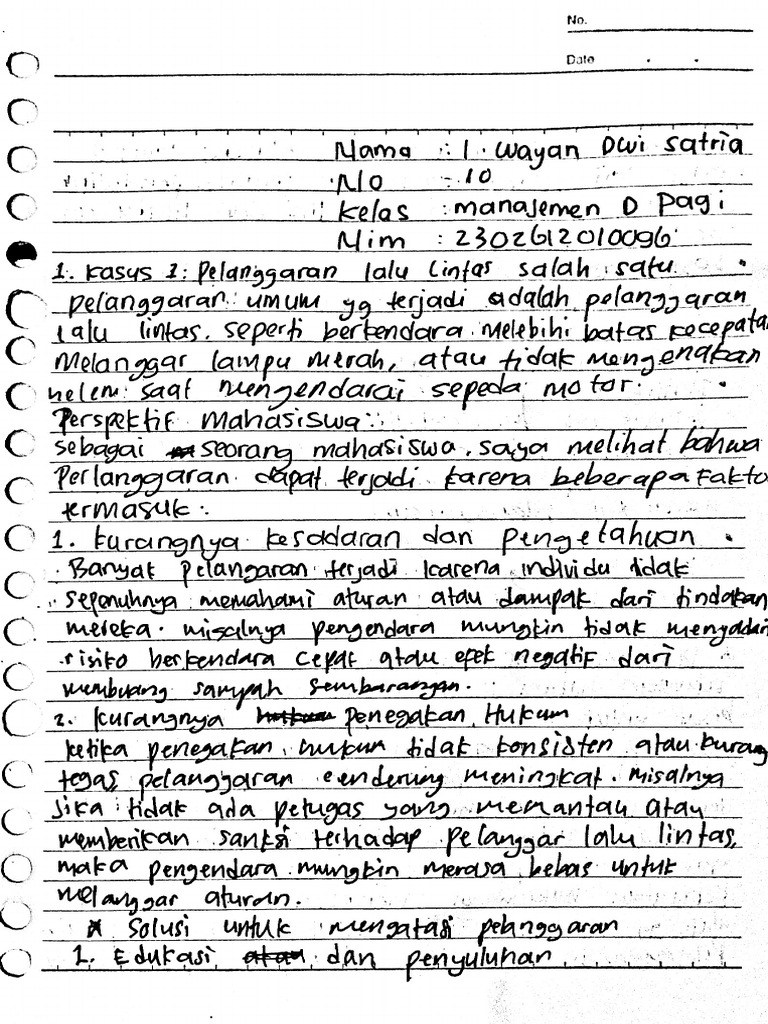 No.
Date
Nama : I. Wayan Dwi Satria
No : 10
Kelas : Manajemen D Pagi
Nim : 2302612010096
1. Kasus 1: Pelanggaran lalu lintas salah satu
pelanggaran umum yg terjadi adalah pelanggaran
lalu lintas. seperti berkendara melebihi batas kecepatan
Melanggar lampu merah, atau tidak mengenakan
helem saat mengendarai sepeda motor.
Perspektif Mahasiswa:
sebagai seorang mahasiswa. saya melihat bahwa
Perlanggaran dapat terjadi karena beberapa Fakto
termasuk:
1. Kurangnya kesadaran dan pengetahuan
Banyak pelangaran terjadi karena individu tidak
sepenuhnya memahami aturan atau dampak dari tindakan
mereka. misalnya pengendara mungkin tidak menyadari
risiko berkendara cepat atau efek negatif dari
membuang sampah sembarangan.
2. Kurangnya penegakan Hukum
ketika penegakan hukum tidak konsisten atau kurang
tegas pelanggaran cenderung meningkat. misalnya
Jika tidak ada petugas yang memantau atau
memberikan sanksi terhadap pelanggar lalu lintas,
maka pengendara mungkin merasa bebas untuk
melanggar aturan.
* Solusi untuk mengatasi pelanggaran
1. Edukasi atau dan penyuluhan